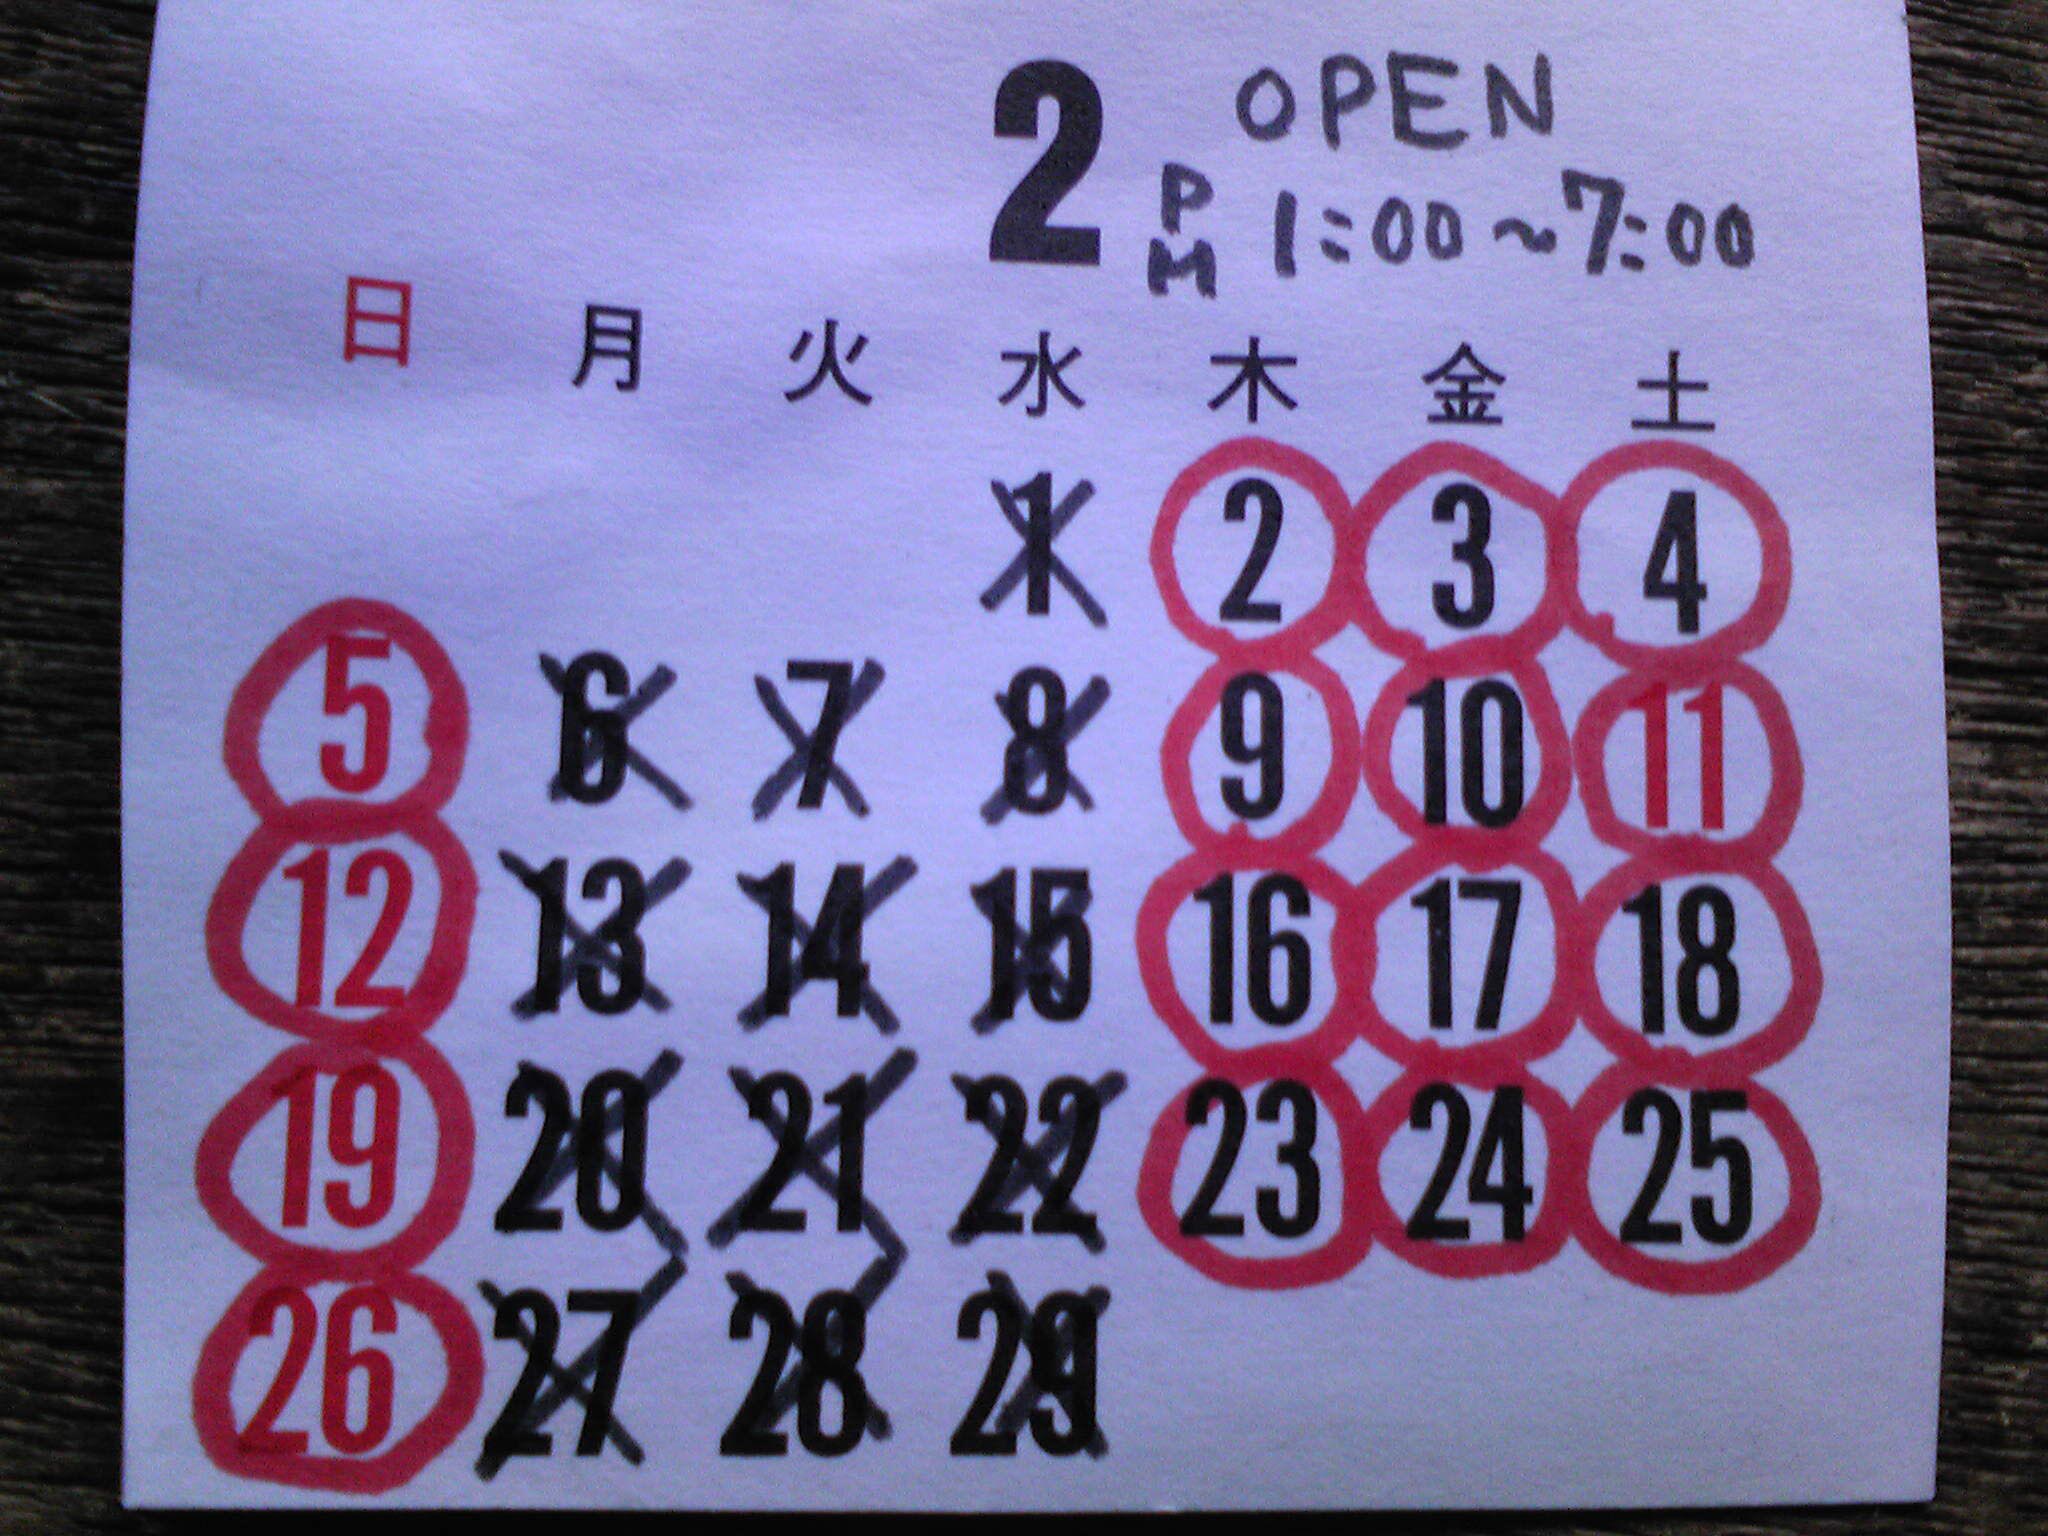 2 OPEN
PM 1:00~7:00
日 月 火 水 木 金 土
1 2 3 4
5 6 7 8 9 10 11
12 13 14 15 16 17 18
19 20 21 22 23 24 25
26 27 28 29